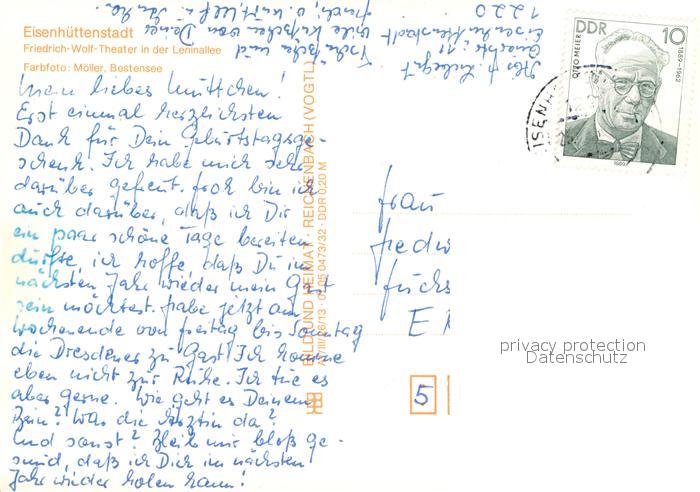 Eisenhüttenstadt
Friedrich-Wolf-Theater in der Leninallee
Farbfoto: Möller, Bestensee
Mein liebes Muttchen!
Erst einmal herzlichsten
Dank für Dein Geburtstagsge-
schenk. Ich habe mich sehr
darüber gefreut. Froh bin ich
auch darüber, daß ich Dir
ein paar schöne Tage bereiten
durfte, ich hoffe, daß Du im
nächsten Jahr wieder mein Gast
sein möchtest. Habe jetzt am
Wochenende von Freitag bis Sonntag
die Dresdener zu Gast. Ich komme
eben nicht zur Ruhe. Ich tue es
aber gerne. Wie geht es Deinem
Bein? War die Ärztin da?
Und sonst? Bleib mir bloß ge-
sund, daß ich Dich im nächsten
Jahr wieder holen kann!
Tschüßchen und
viele Küßchen von Deiner
Eisenhüttenstadt
1220
BILD UND HEIMAT · REICHENBACH (VOGTL)
DDR 0,20 M
DDR
10
OTTO MEIER
1889-1962
1989
ISENH
Frau
5
privacy protection
Datenschutz